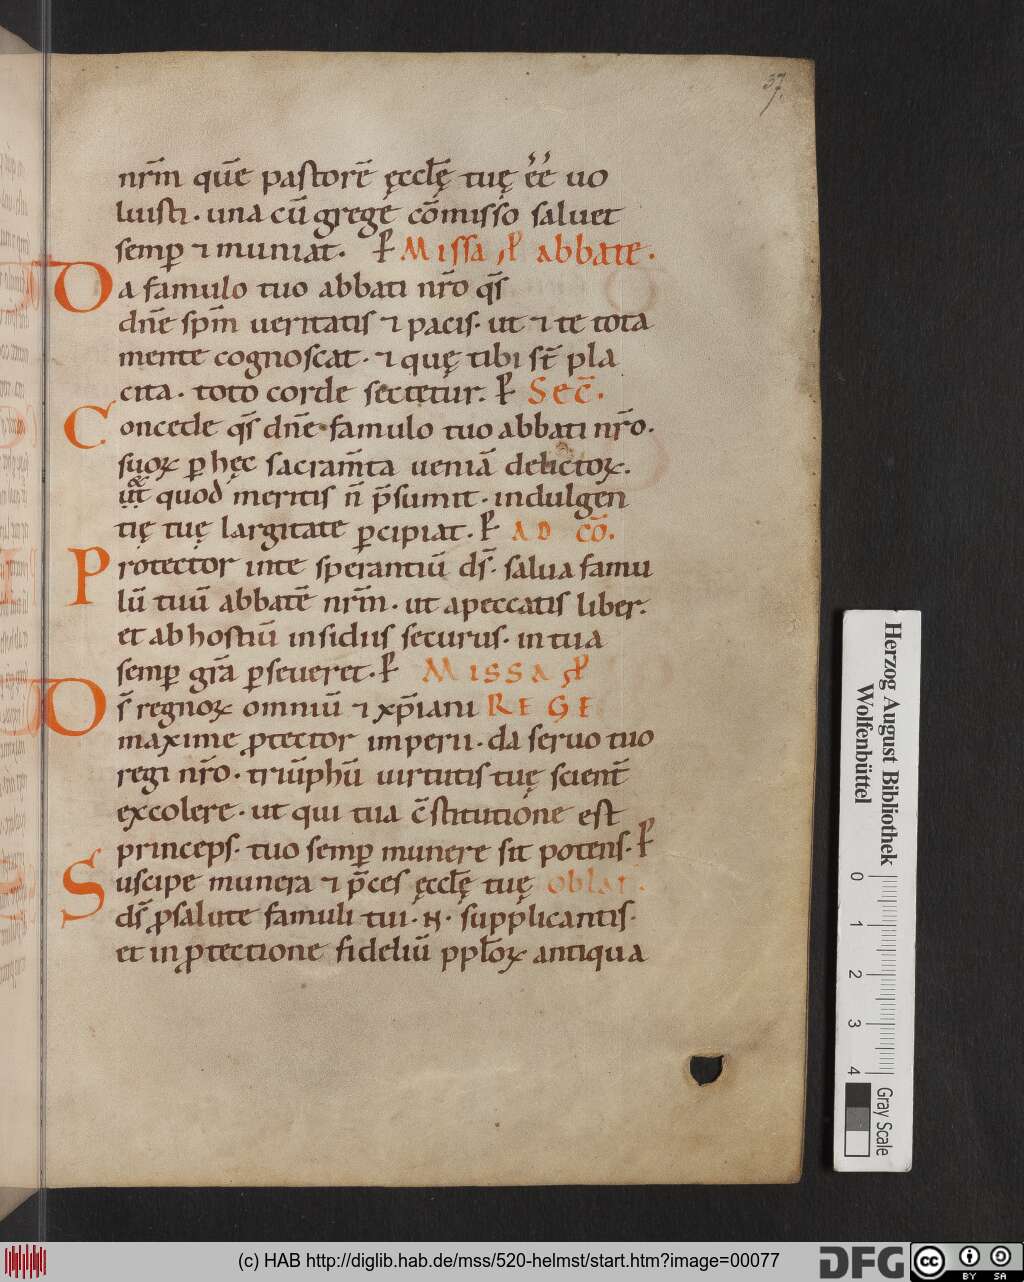 37.
nr̄m quē pastorē ęccl̄ę tuę ēē uo
luisti · una cū grege cōmisso saluet
semp̲ ⁊ muniat. P̲ Missa p̲ abbate.
Da famulo tuo abbati nr̄o qs̄
dn̄e sp̄m ueritatis ⁊ pacis · ut ⁊ te tota
mente cognoscat · ⁊ quę tibi st̄ pla
cita · toto corde sectetur. P̲ Sec̄.
Concede qs̄ dn̄e famulo tuo abbati nr̄o.
suoꝝ p̲ hęc sacram̄ta ueniā delictoꝝ.
ut quod meritis n̄ p̄sumit · indulgen
tię tuę largitate p̲cipiat. P̲ AD cō.
Protector inte sperantiū ds̄ · salua famu
lū tuū abbatē nr̄m · ut apeccatis liber.
et ab hostiū insidiis securus · in tua
semp̲ gr̄a p̲seueret. P̲ Missa p̲
Ds̄ regnoꝝ omniū ⁊ xp̄iani REGE
maxime ꝓtector imperii · da seruo tuo
regi nr̄o · triūphū uirtutis tuę scient̄
excolere · ut qui tua c̄stitutione est
princeps · tuo semp̲ munere sit potens. P̲
Suscipe munera ⁊ p̄ces ęccl̄ę tuę oblat.
ds̄ ꝓsalute famuli tui · N · supplicantis ·
et in ꝓtectione fideliū ppl̄oꝝ antiqua
Herzog August Bibliothek
Wolfenbüttel
0 1 2 3 4
Gray Scale
(c) HAB http://diglib.hab.de/mss/520-helmst/start.htm?image=00077
DFG
cc BY SA